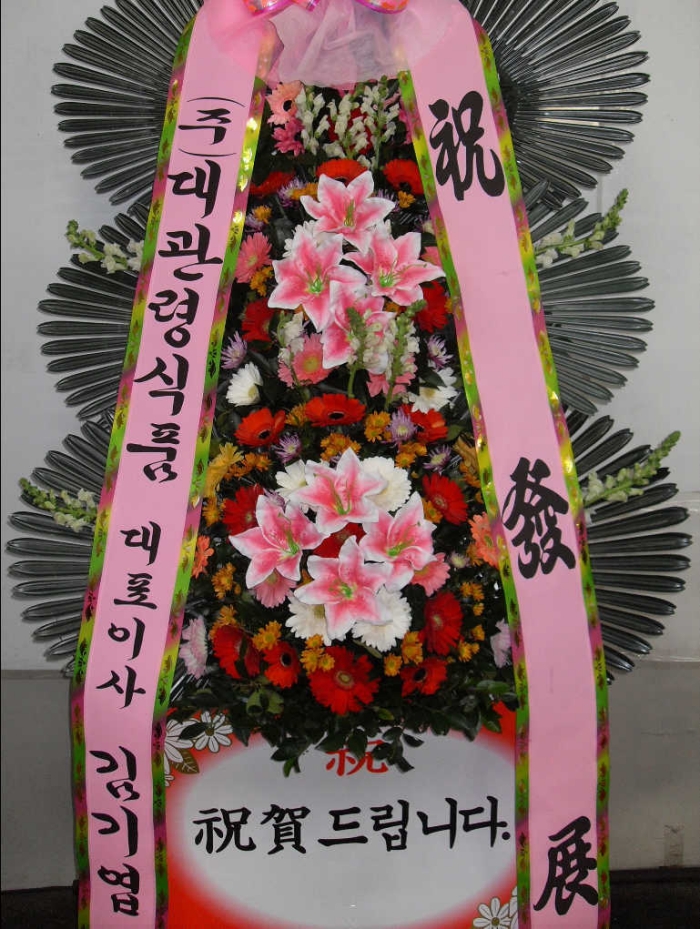 (주)대관령식품 대표이사 김기엽
祝 發展
祝
祝賀드립니다.